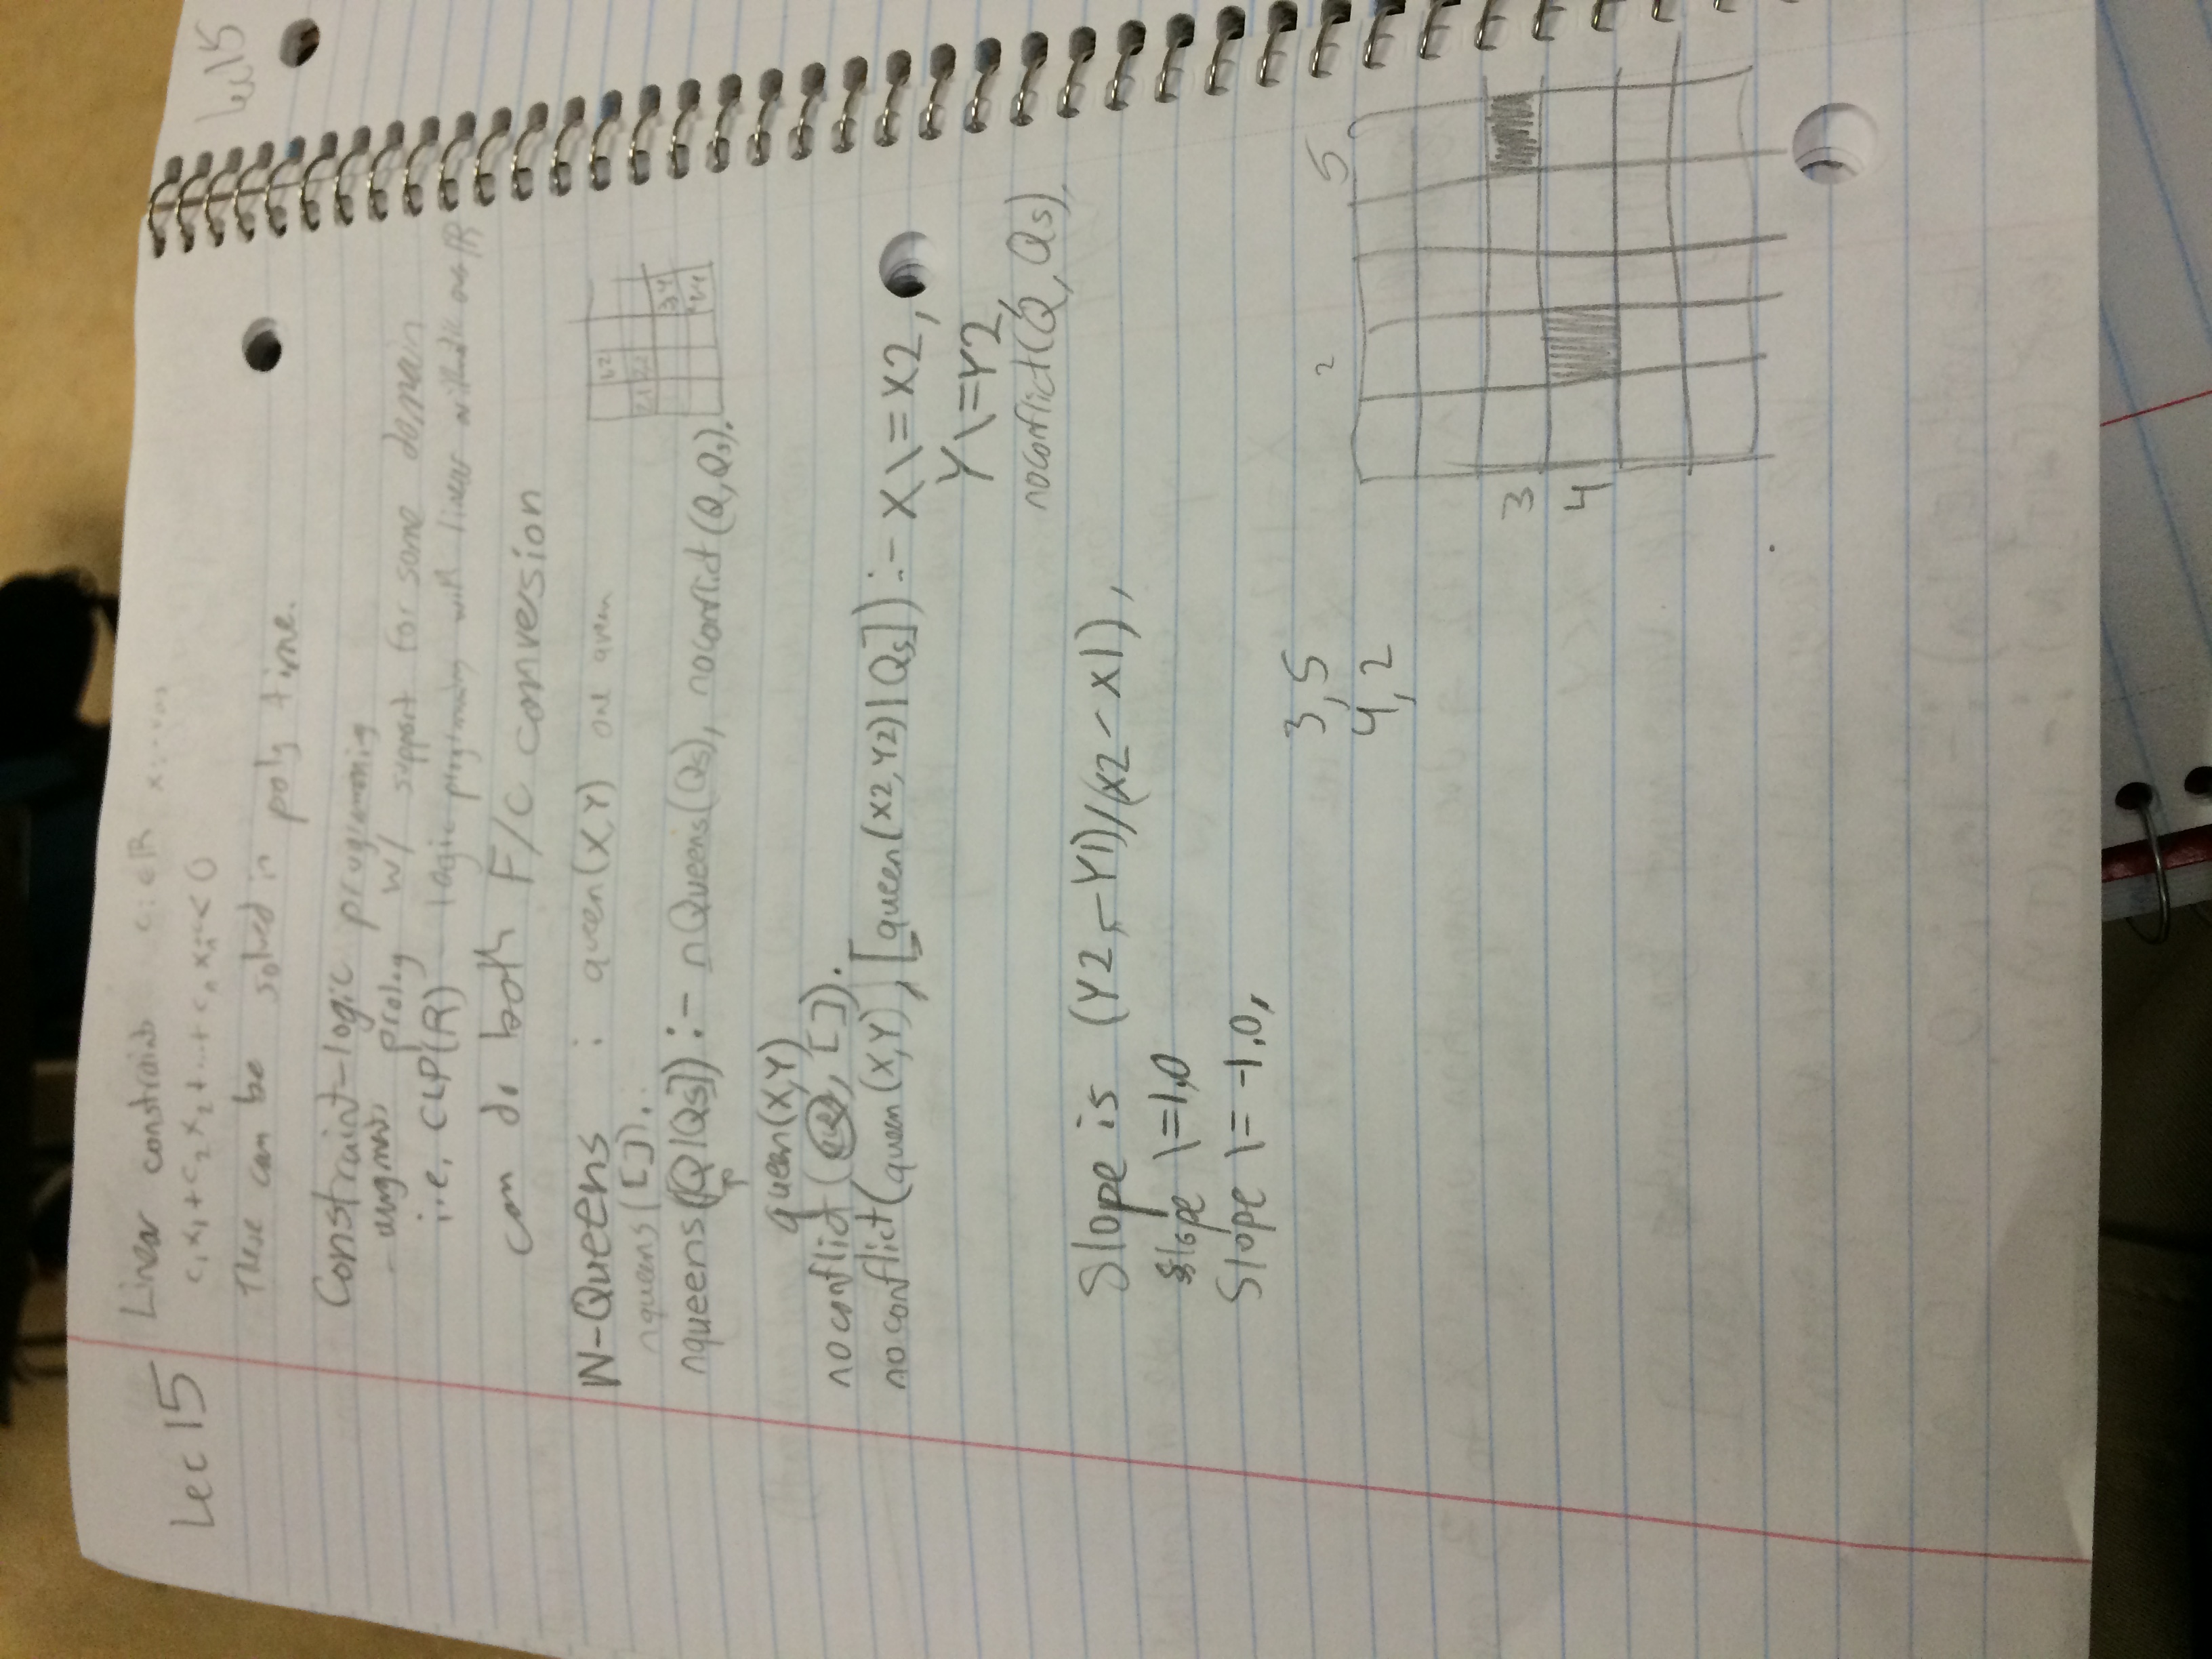 Lec 15
Linear constraints ci ∈ R
c1x1 + c2x2 + ... + cnxn < 0
These can be solved in poly time.
Constraint-logic programming
- augments prolog w/ support for some domain
i.e, CLP(R) - logic programming with linear arithmetic over R
can do both F/C conversion
N-Queens : queen(X,Y) one queen
nqueens([]).
nqueens([Q|Qs]) :- nQueens(Qs), noconflict(Q,Qs).
queen(X,Y)
noconflict( , []).
noconflict(queen(X,Y), [queen(X2,Y2)|Qs]) :- X\=X2,
Y\=Y2,
noconflict(Q,Qs).
Slope is (Y2-Y1)/(X2-X1),
Slope \=1.0
Slope \= -1.0,
3,5
4,2
2 5
3
4
Lec 15